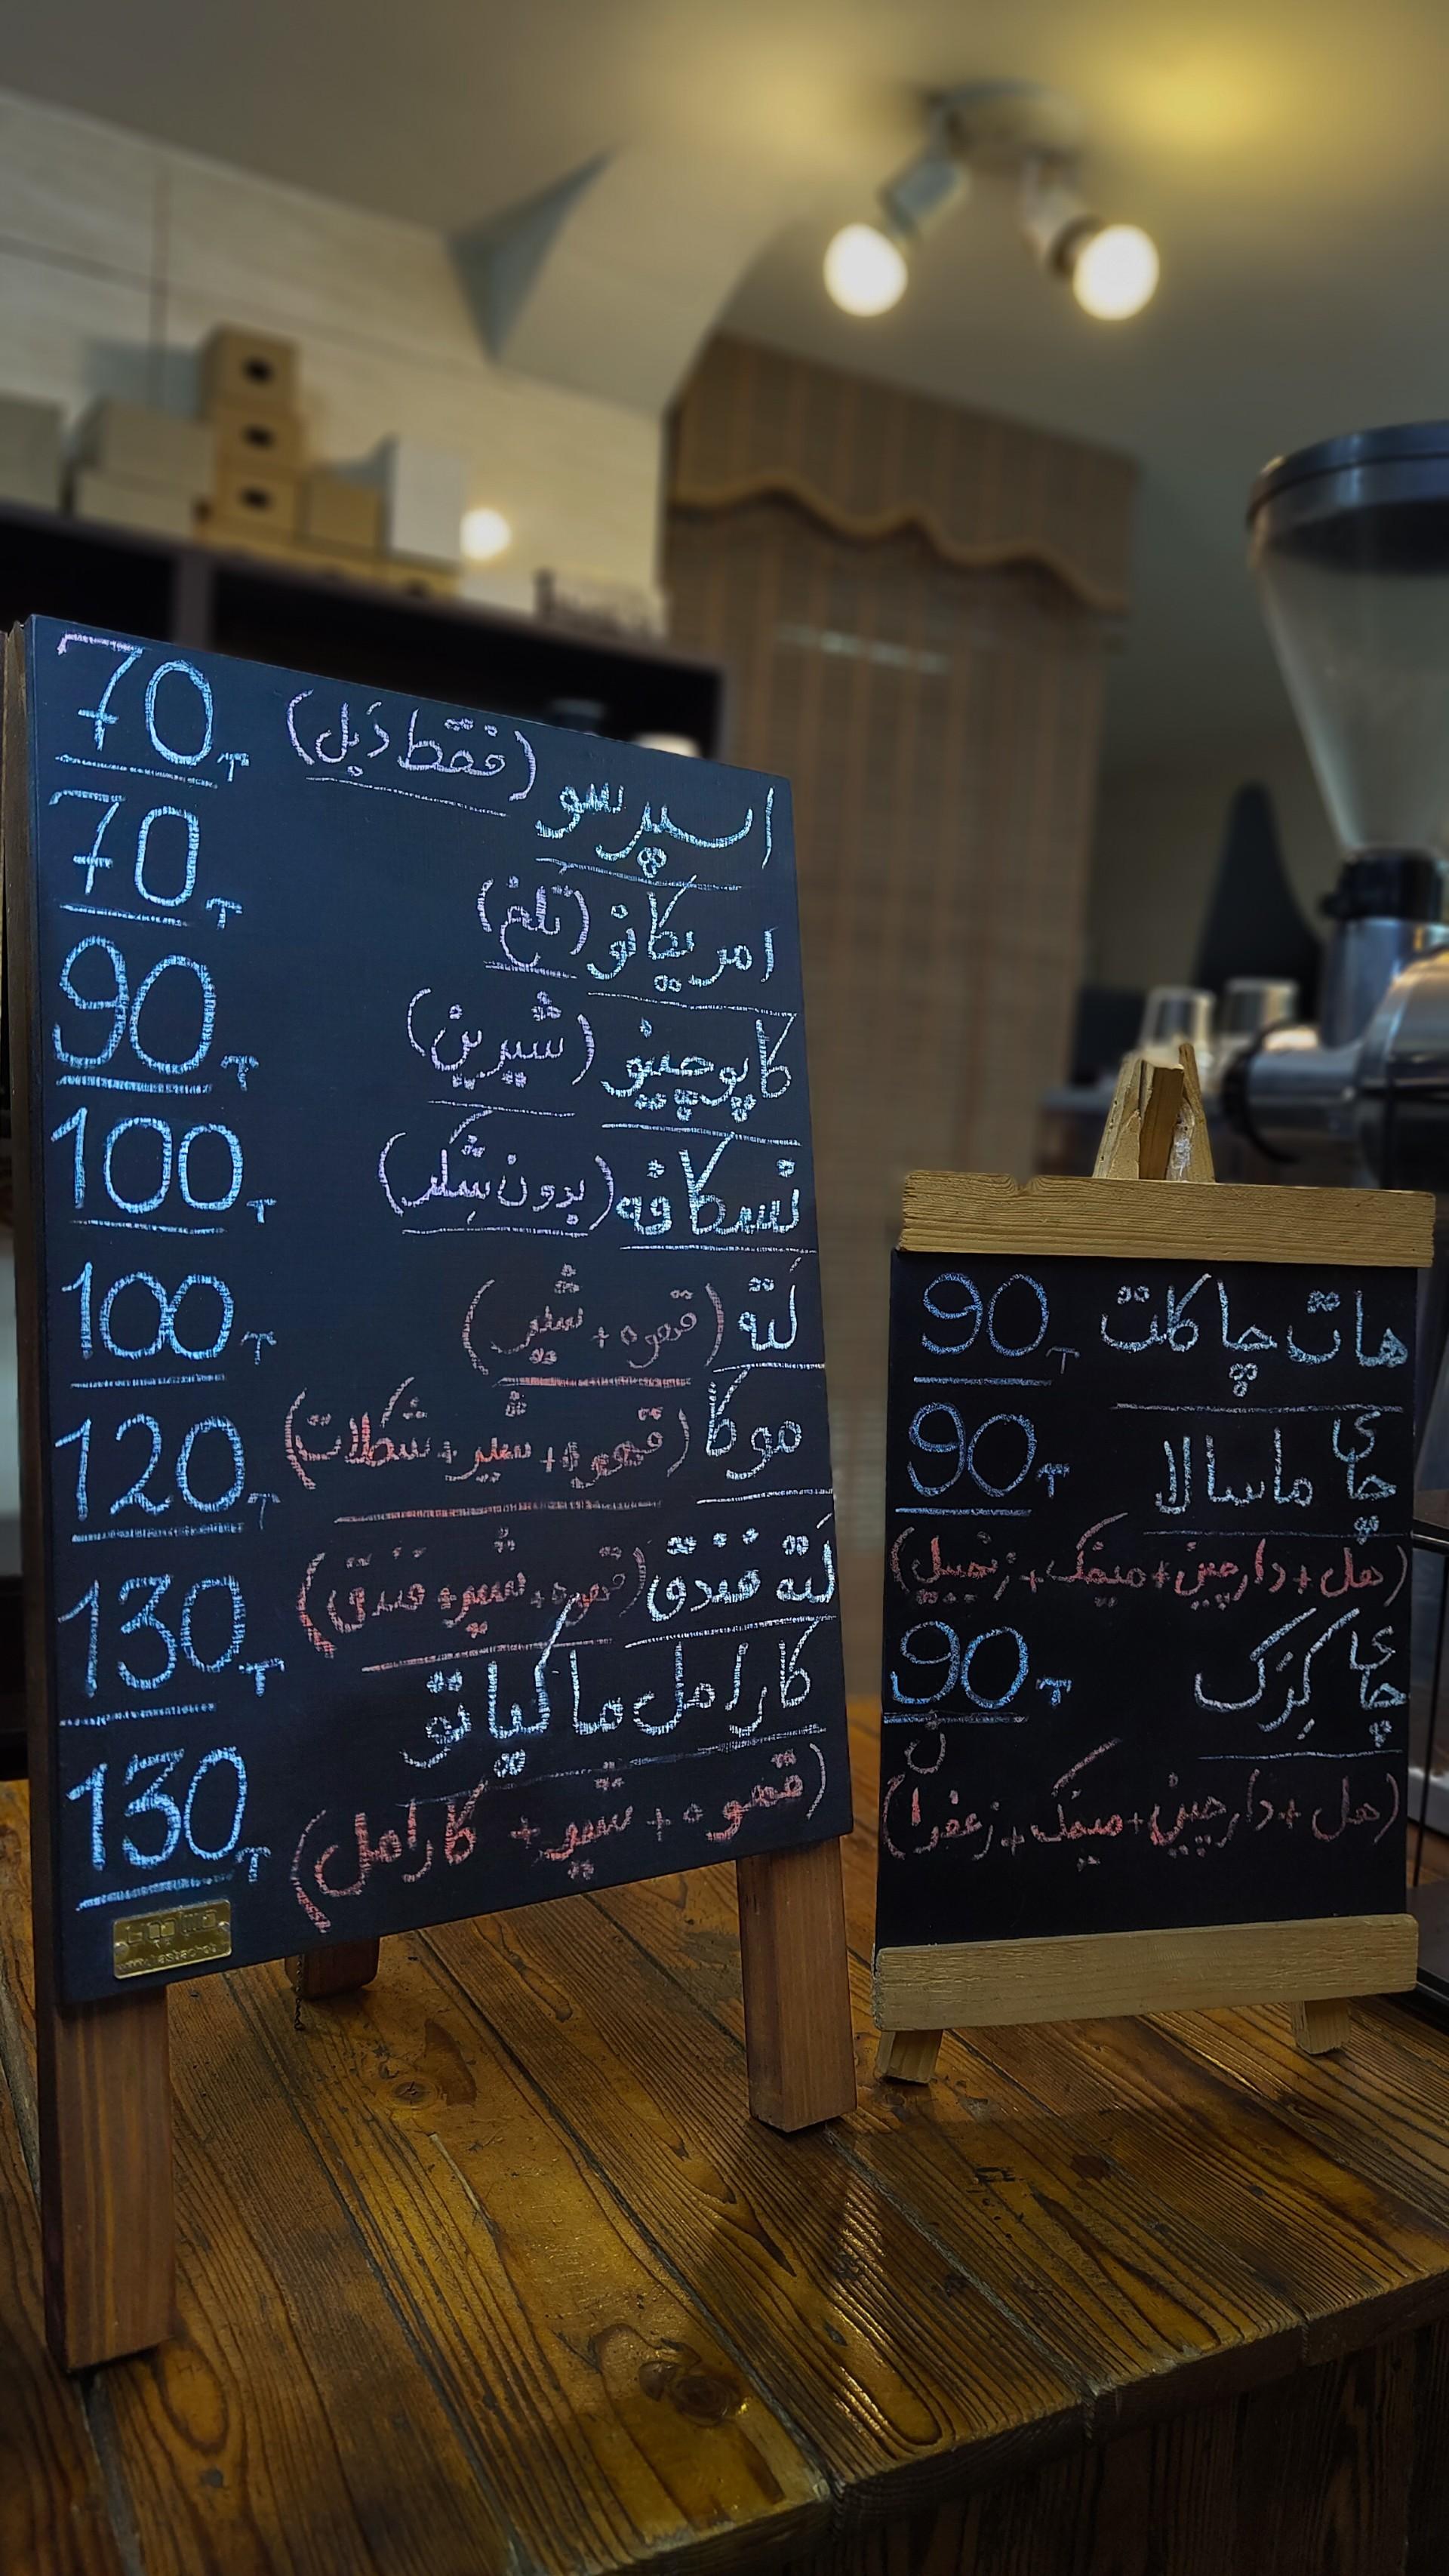 اسپرسو (فقط دَبل) 70T
امریکانو (تلخ) 70T
کاپوچینو (شیرین) 90T
نسکافه (بدون شِکر) 100T
لَته (قهوه + شیر) 100T
موکا (قهوه + شیر + شکلات) 120T
لَته فندق (قهوه + شیر + فندق) 130T
کارامل ماکیاتو 130T
(قهوه + شیر + کارامل)
هات چاکلت 90T
چای ماسالا 90T
(هل + دارچین + میخک + زنجبیل)
چای کَرَک 90T
(هل + دارچین + میخک + زعفران)